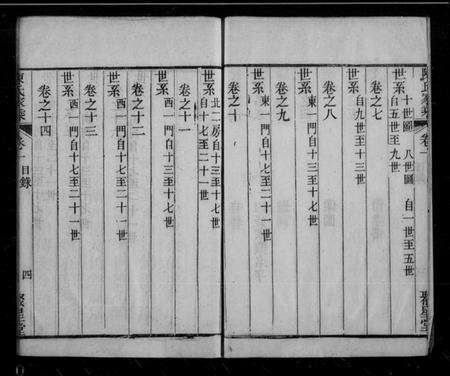 陳氏家乘 卷一 聚星堂
十世圖 八世圖 自一世至五世
世系 自五世至九世
卷之七
世系 自九世至十三世
卷之八
世系 東一門自十三至十七世
卷之九
世系 東一門自十七至二十一世
卷之十
世系 北二房自十三至十七世
自十七至二十一世
卷之十一
世系 西一門自十三至十七世
卷之十二
世系 西一門自十七至二十一世
卷之十三
世系 西一門自十七至二十一世
卷之十四
陳氏家乘 卷一 目錄 四 聚星堂